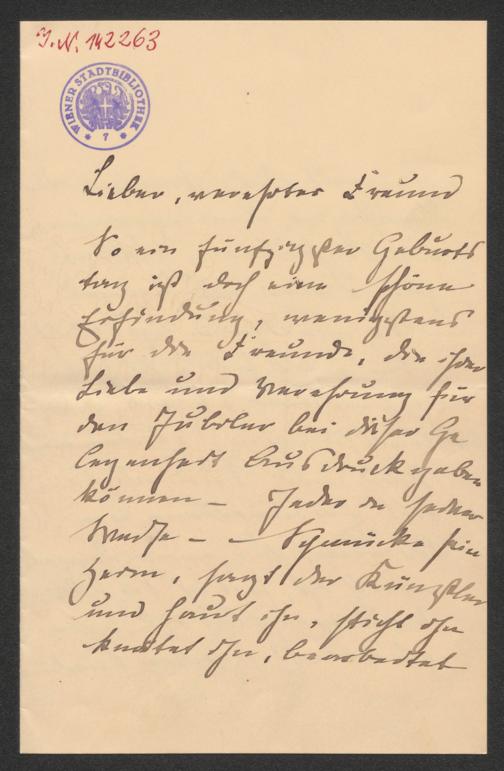 J. N. 142263
WIENER STADTBIBLIOTHEK
* 7 *
Lieber, verehrter Freund
So ein fünfzigster Geburts
tag ist doch eine schöne
Erfindung, wenigstens
für die Freunde, die ihrer
Liebe und Verehrung für
den Jubilar bei dieser Ge
legenheit Ausdruck geben
können – Jeder in seiner
Weise – Schmücke sein
Heim, sagt der Künstler
und haut ihn, sticht ihn
knetet ihn, bearbeitet